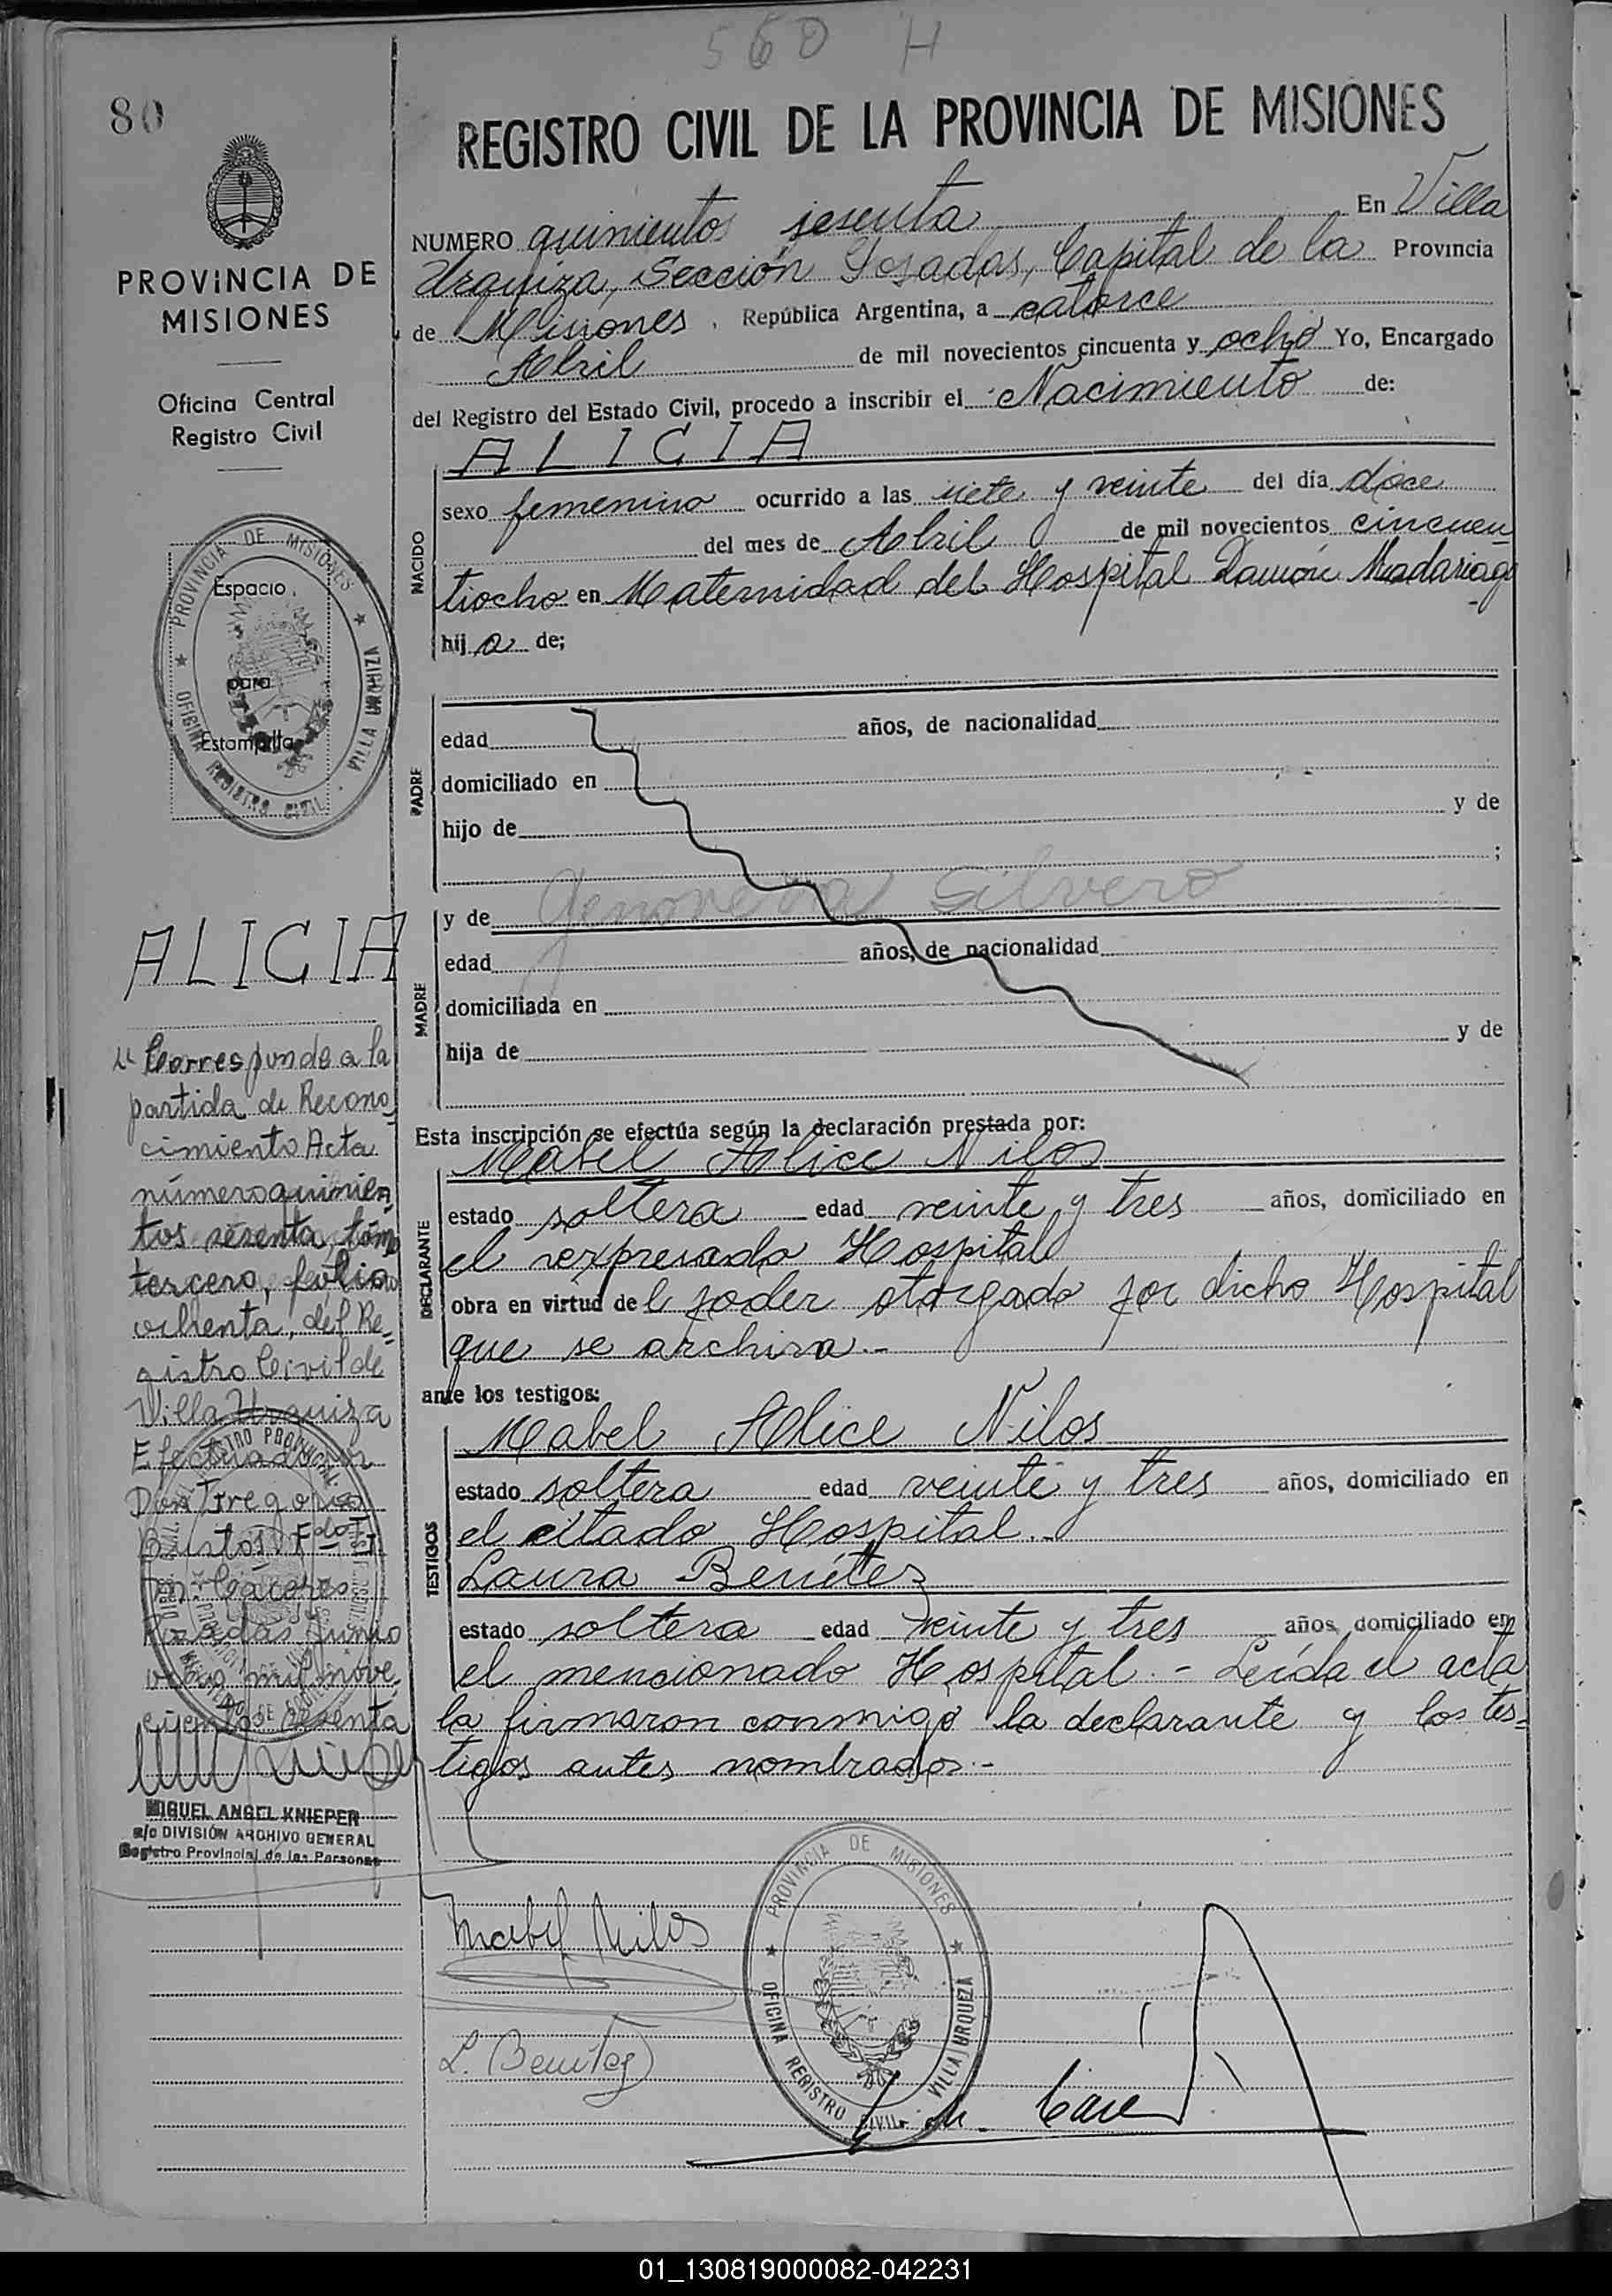 560 H
80
REGISTRO CIVIL DE LA PROVINCIA DE MISIONES
NUMERO quinientos sesenta En Villa
Urquiza, Sección Posadas, Capital de la Provincia
de Misiones, República Argentina, a catorce
Abril de mil novecientos cincuenta y ocho Yo, Encargado
del Registro del Estado Civil, procedo a inscribir el Nacimiento de:
ALICIA
NACIDO
sexo femenino ocurrido a las siete y veinte del día doce
del mes de Abril de mil novecientos cincuen
tiocho en Maternidad del Hospital Ramón Madariaga
hij a de;
PADRE
edad años, de nacionalidad
domiciliado en
hijo de y de
;
MADRE
y de Genoveva Silvero
edad años, de nacionalidad
domiciliada en
hija de y de
Esta inscripción se efectúa según la declaración prestada por:
Mabel Alice Nilos
DECLARANTE
estado soltera edad veinte y tres años, domiciliado en
el expresado Hospital
obra en virtud del poder otorgado por dicho Hospital
que se archiva.-
ante los testigos:
Mabel Alice Nilos
TESTIGOS
estado soltera edad veinte y tres años, domiciliado en
el citado Hospital.-
Laura Benítez
estado soltera edad veinte y tres años, domiciliado en
el mencionado Hospital.- Leída el acta
la firmaron conmigo la declarante y los tes=
tigos antes nombrados.-
Mabel Nilos
L. Benitez
PROVINCIA DE MISIONES
OFICINA REGISTRO CIVIL - VILLA URQUIZA
PROVINCIA DE
MISIONES
Oficina Central
Registro Civil
PROVINCIA DE MISIONES
OFICINA REGISTRO CIVIL - VILLA URQUIZA
Espacio
para
Estampilla
ALICIA
Corresponde a la
partida de Recono
cimiento Acta
número quinien
tos sesenta, tomo
tercero, folio
ochenta, del Re=
gistro Civil de
Villa Urquiza
Efectuado por
Don Gregorio
Bustos. Fdo
M. Caceres
Posadas Junio
mil nove
cientos sesenta
MIGUEL ANGEL KNIEPER
a/c DIVISIÓN ARCHIVO GENERAL
Registro Provincial de las Personas
01_130819000082-042231